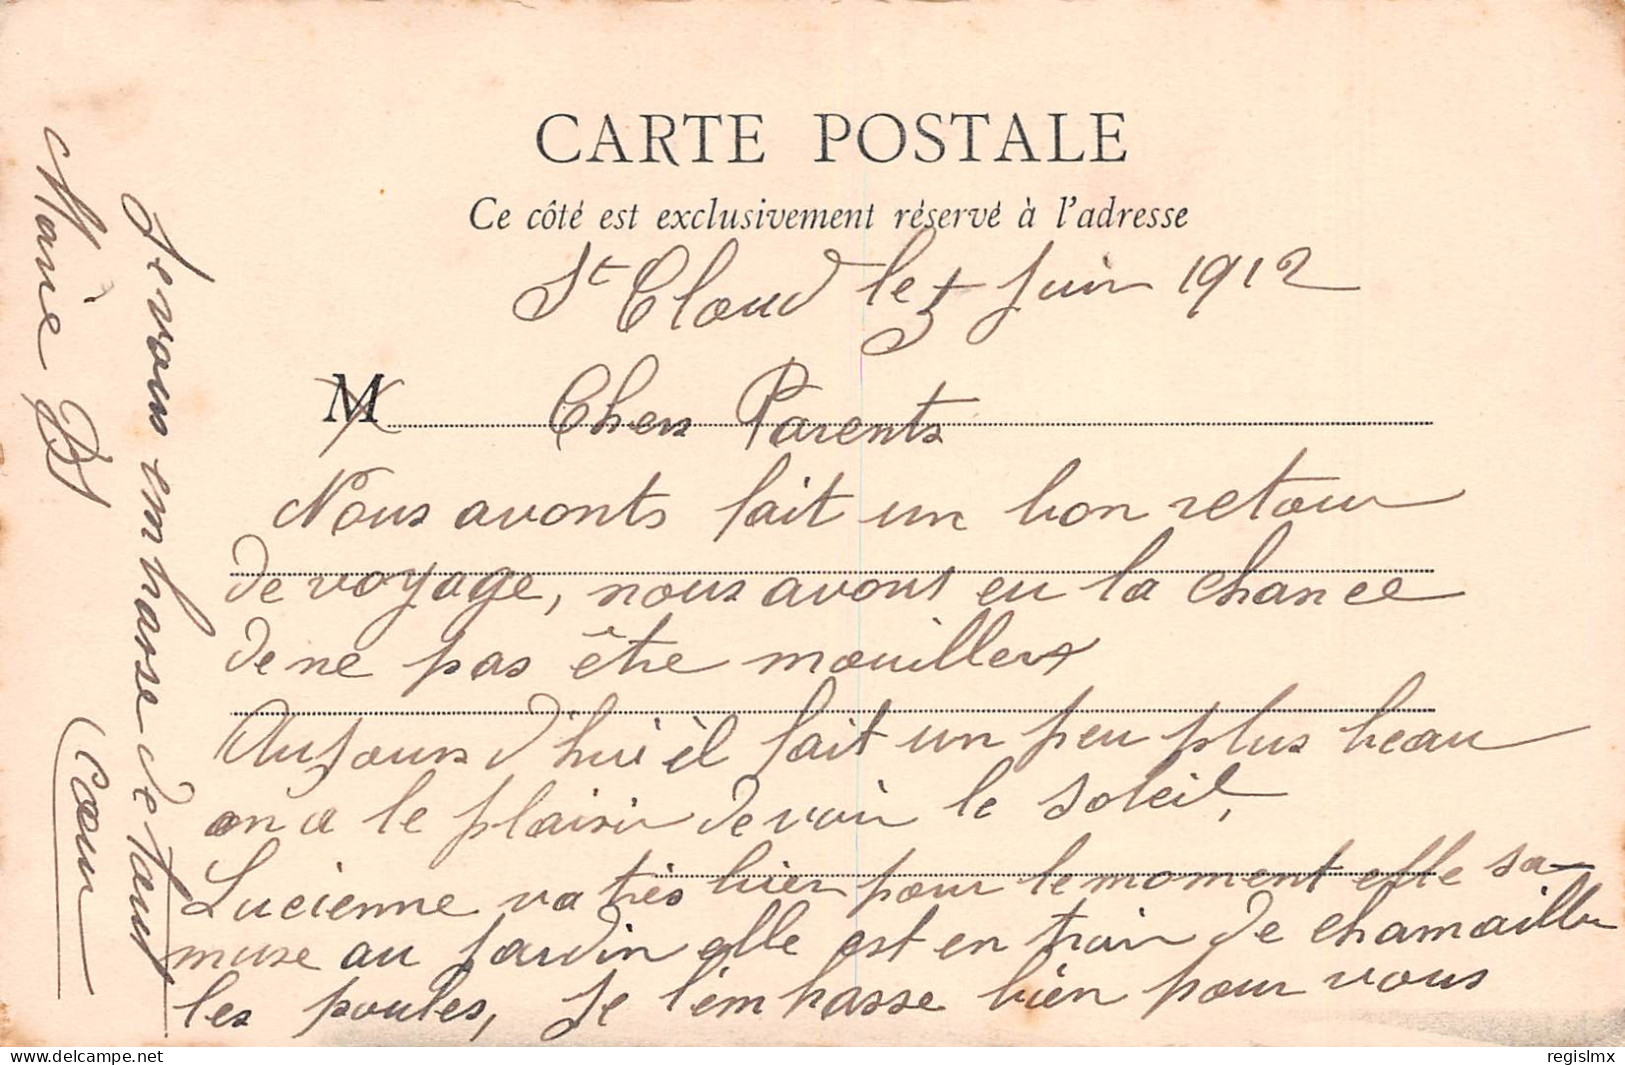 CARTE POSTALE
Ce côté est exclusivement réservé à l'adresse
St Cloud le 5 Juin 1912
M
Chers Parents
Nous avonts fait un bon retour
de voyage, nous avons eu la chance
de ne pas être mouillers
Aujours d'hui èl fait un peu plus beau
on a le plaisir de voir le soleil,
Lucienne va très bien pour le moment elle sa-
muse au jardin elle est en train de chamailler
les poules, Je l'embrasse bien pour vous
Je vous embrasse de tout
cœur
Marie
regislmx